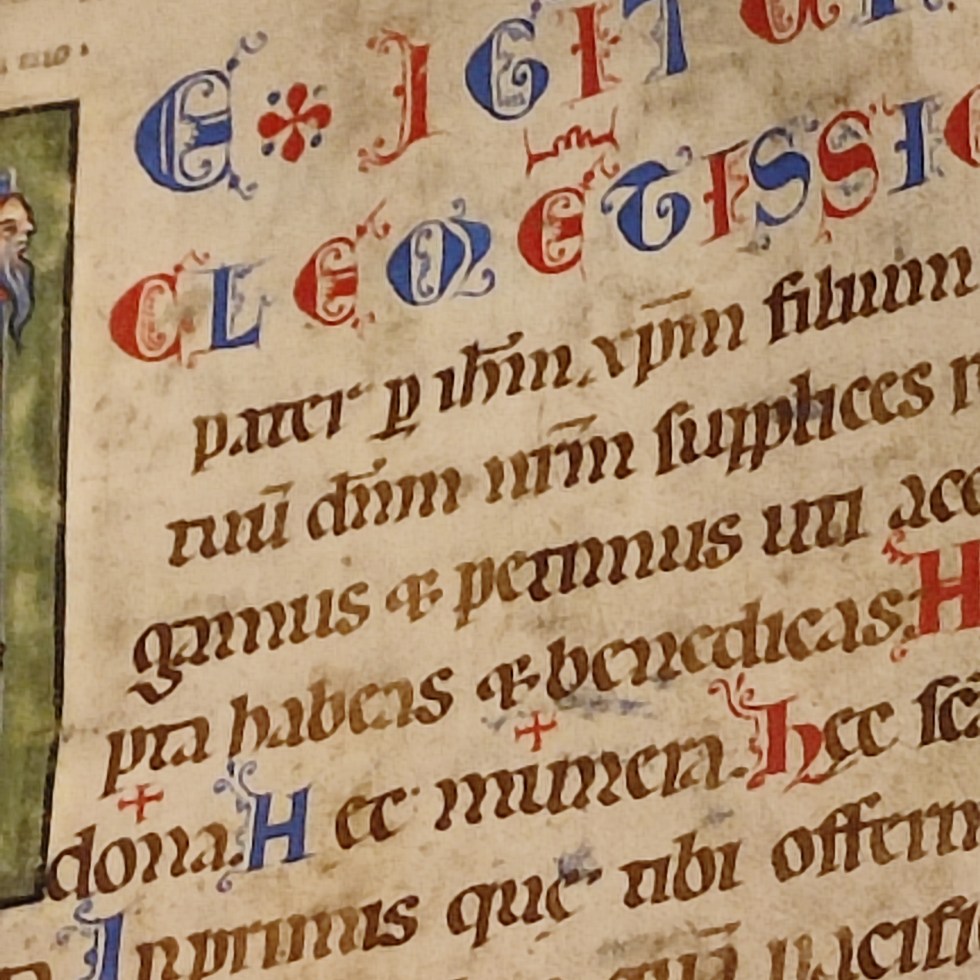 E IGIT
CLEMĒTISSI
pater ꝑ ih̄m xp̄m filium
tuū dn̄m nr̄m supplices
gamus & petimus uti acc
pta habeas & benedicas; H
dona. Hec munera. hęc sc̄
Inprimis quę tibi offerim
quā pacifi